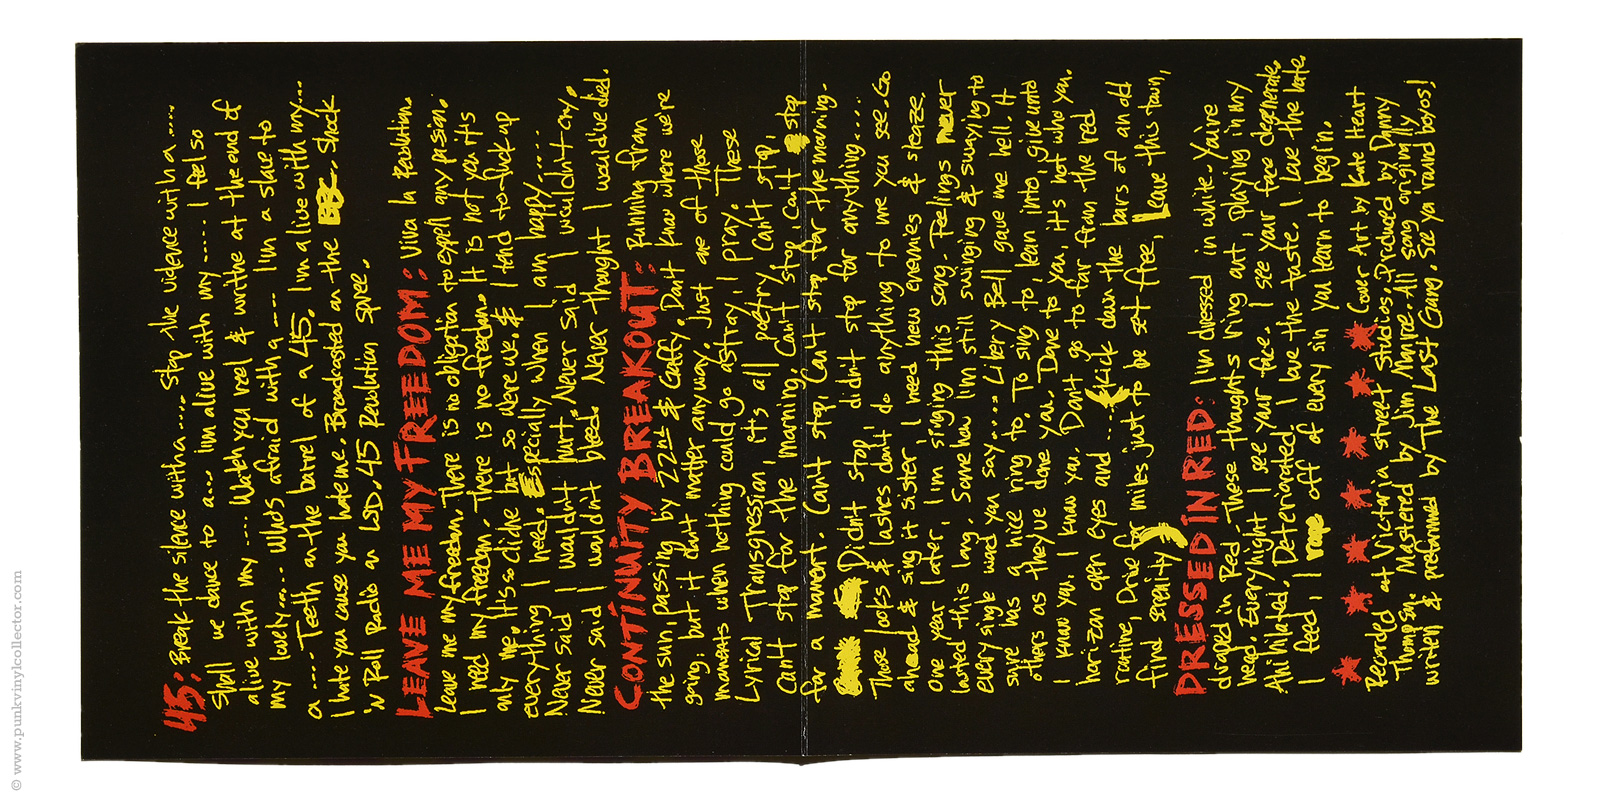 45: Break the silence with a.... Stop the violence with a ....
Shall we dance to a... I'm alive with my .... I feel so
alive with my .... Watch you reel & writhe at the end of
my lovely... Who's afraid with a --- I'm a slave to
a .... Teeth on the barrel of a 45. I'm alive with my...
I hate you cause you hate me. Broadcasted on the Shock
'n Roll Radio an LSD. 45 Revolution Spree.
LEAVE ME MY FREEDOM: Viva la Revolution.
Leave me my freedom. There is no obligation to expell any passion.
I need my freedom. There is no freedom. It is not you it's
only me. It's cliche but so were we. & I tend to fuck up
everything I need. Especially when I am happy....
Never said I wouldn't hurt. Never said I wouldn't cry.
Never said I wouldn't bleed. Never thought I would've died.
CONTINUITY BREAKOUT: Running from
the sun, passing by 22nd & Guffy. Don't know where we're
going, but it don't matter anyway. Just one of those
moments when nothing could go astray, I pray. These
Lyrical Transgression, it's all poetry. Can't stop,
Can't stop for the morning, Can't stop, Can't stop
for a moment. Can't stop, Can't stop for the morning.
Didn't stop, didn't stop for anything....
Those looks & lashes don't do anything to me you see. Go
ahead & sing it sister, I need new enemies & sleaze.
One year later, I'm singing this song. Feelings never
lasted this long. Somehow I'm still swinging & swaying to
every single word you say.... Libery Bell gave me hell. It
sure has a nice ring to. To sing to, lean into, give unto
others as they've done you. Done to you, it's not who you.
I know you. I know you. Don't go to far from the red
horizon open eyes and ....(kick down the bars of an old
routine, Drive for miles just to be set free, Leave this town,
find serenity)
DRESSED IN RED: I'm dressed in white. You're
draped in Red. These thoughts ring out, playing in my
head. Everynight I see your face. I see your face degenerate.
Anihilated. Deteriorated. I love the taste. I love the hate.
I feed, I rope off of every sin you learn to begin.
★ ★ ★ ★ ★ ★ ★ Cover Art by Kate Heart
Recorded at Victoria street Studios. Produced by Danny
Thompson. Mastered by Jim Monroe. All song originally
written & preformed by The Last Gang. See ya 'round boyos!
© www.punkvinylcollector.com